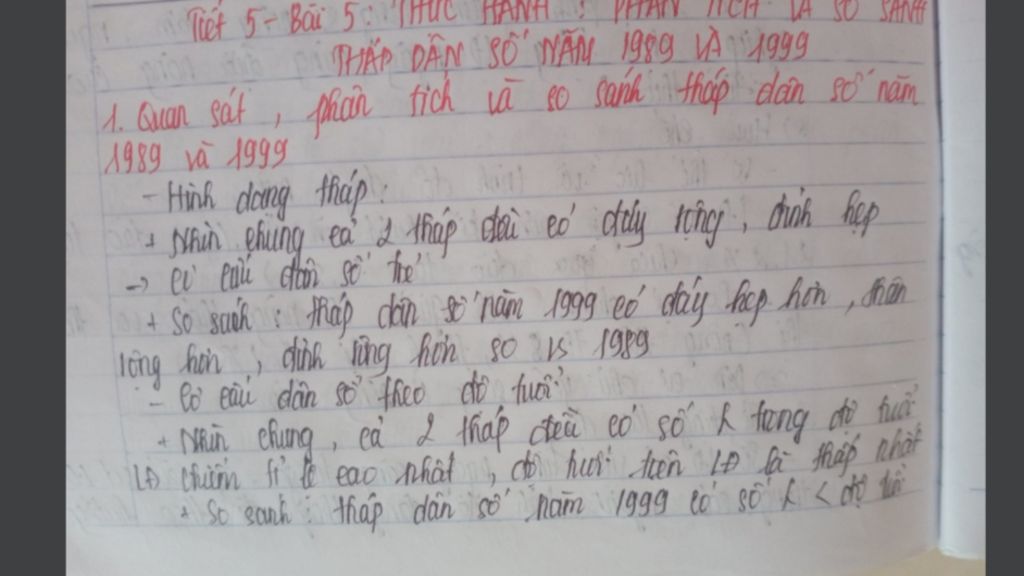 Tiết 5 - Bài 5: THỰC HÀNH: PHÂN TÍCH VÀ SO SÁNH
THÁP DÂN SỐ NĂM 1989 VÀ 1999
1. Quan sát, phân tích và so sánh tháp dân số năm
1989 và 1999
- Hình dạng tháp:
+ Nhìn chung cả 2 tháp đều có đáy rộng, đỉnh hẹp
-> cơ cấu dân số trẻ
+ So sánh: tháp dân số năm 1999 có đáy hẹp hơn, thân
rộng hơn, đỉnh rộng hơn so vs 1989
- Cơ cấu dân số theo độ tuổi
+ Nhìn chung, cả 2 tháp đều có số trong độ tuổi
LĐ chiếm tỉ lệ cao nhất, độ tuổi trên LĐ là thấp nhất
+ So sánh: tháp dân số năm 1999 có số < độ tuổi